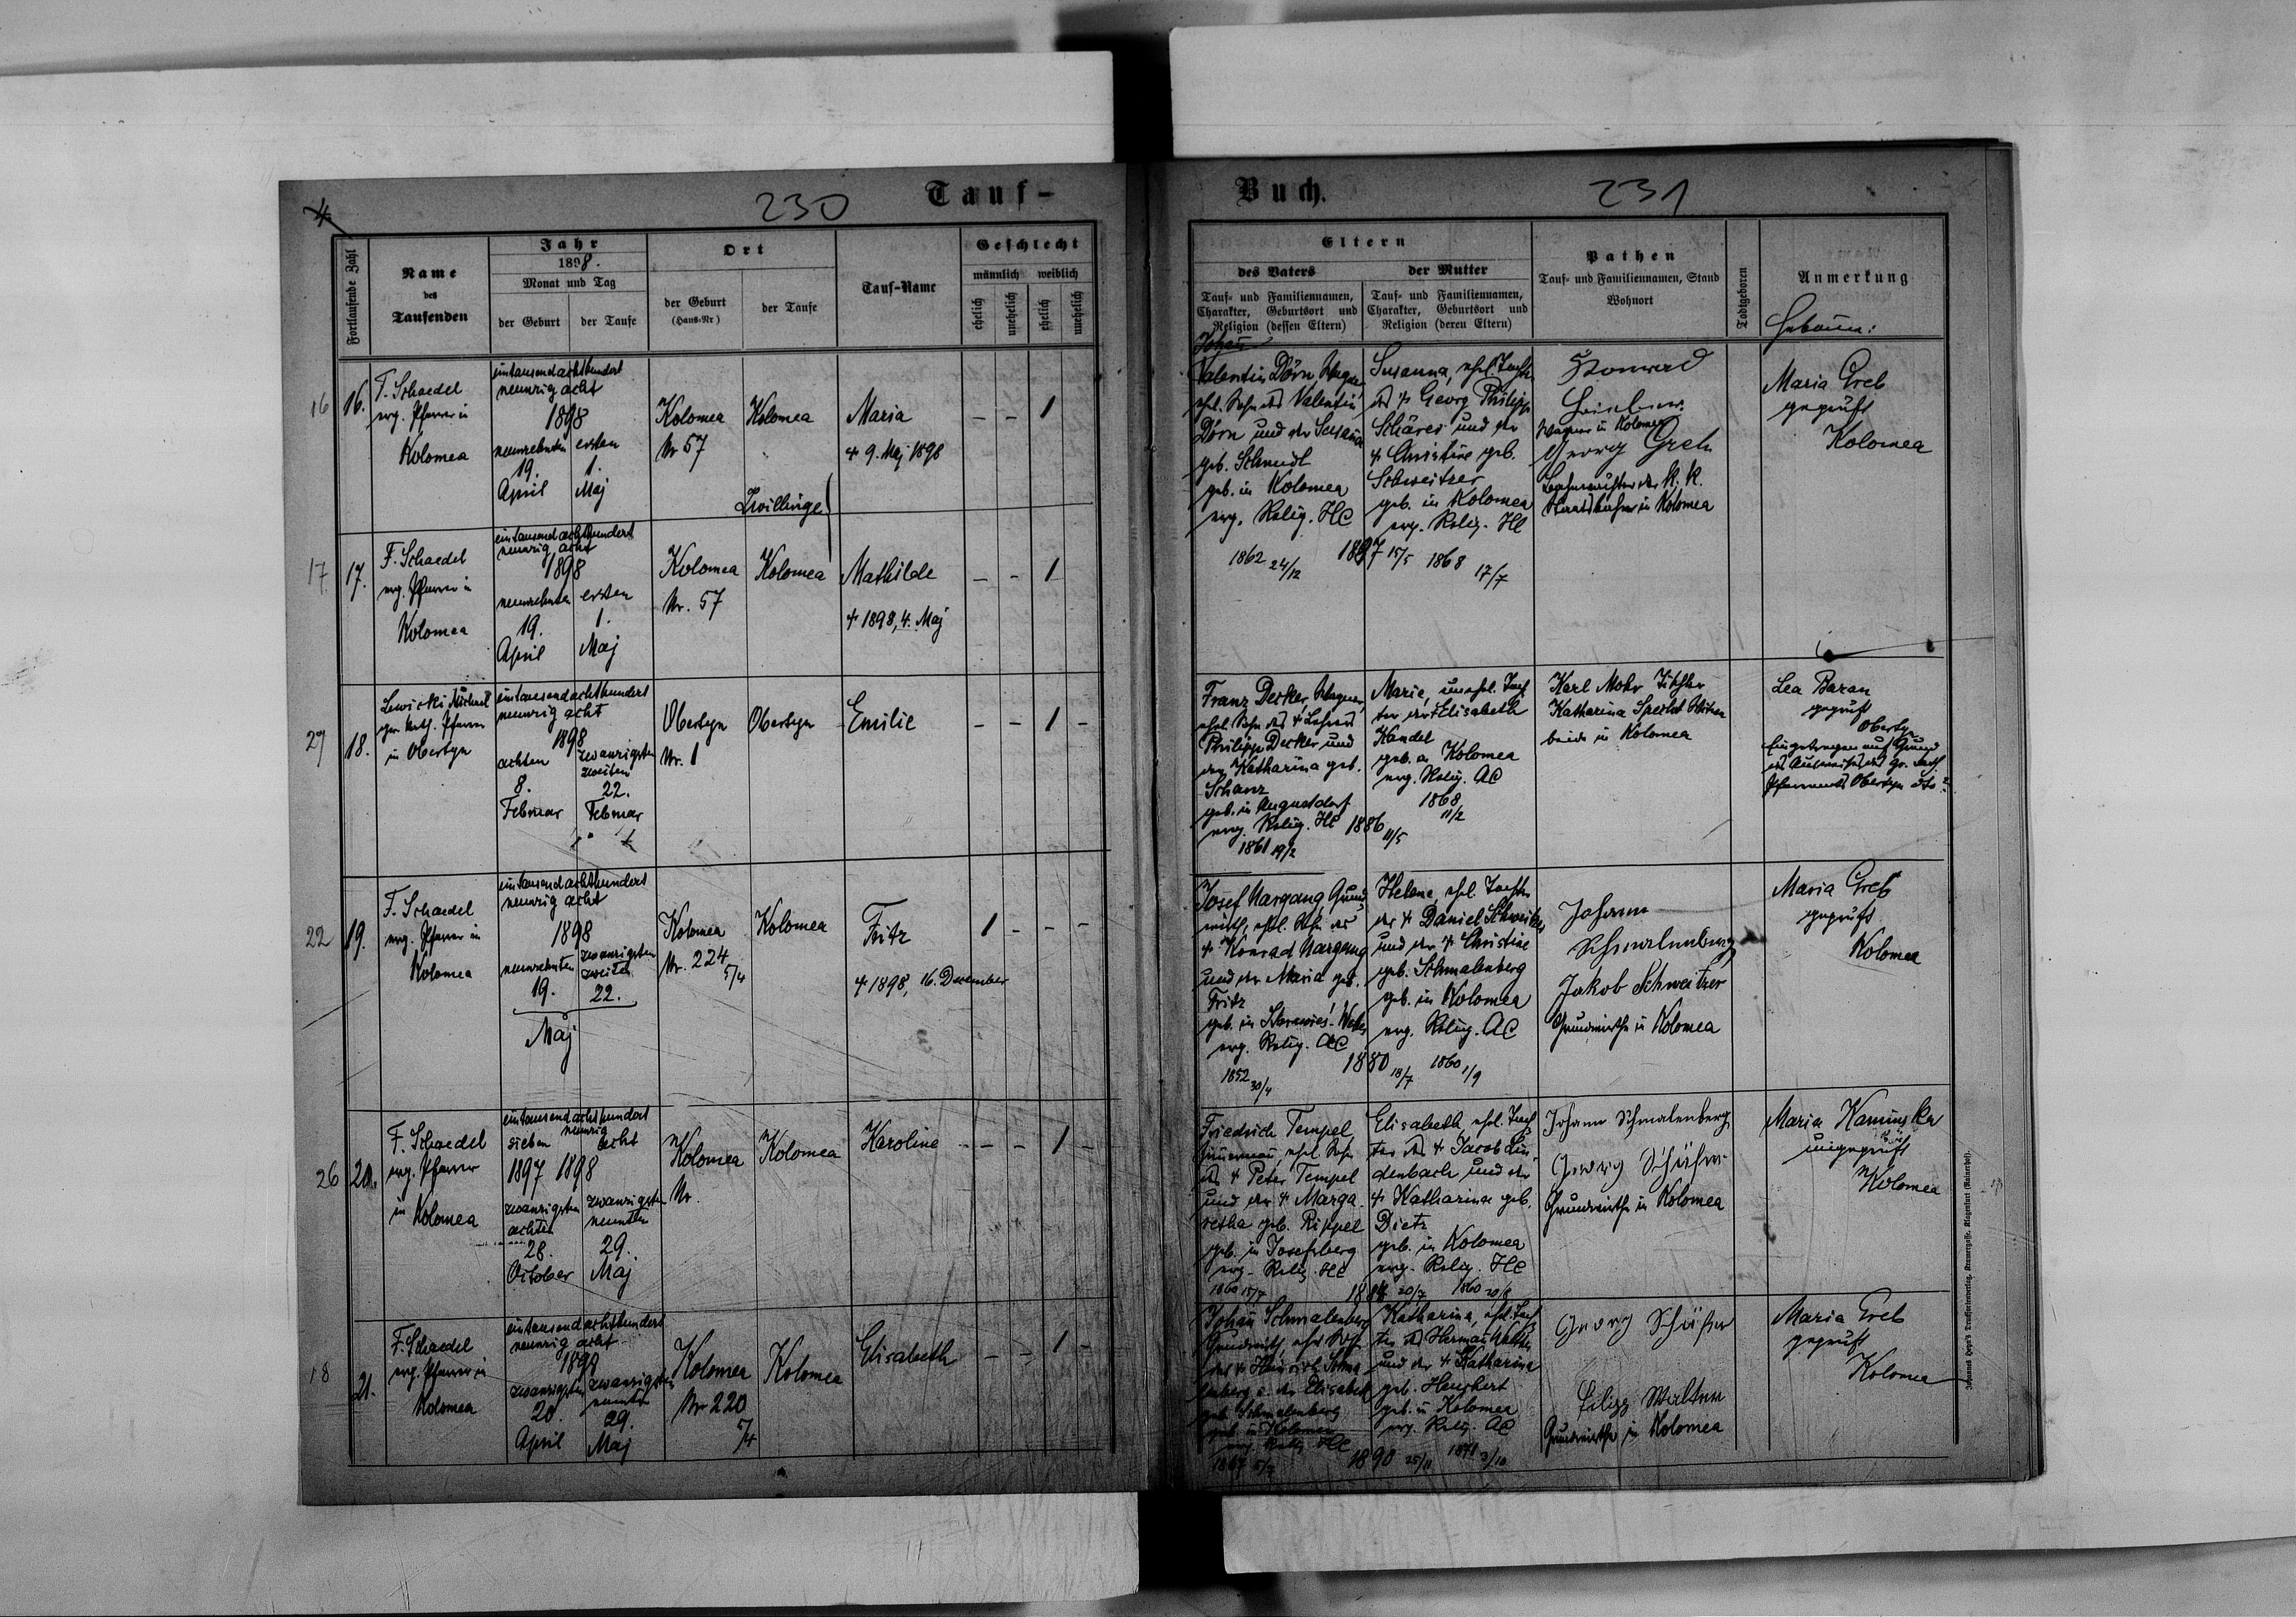 4
230
Tauf-
Fortlaufende Zahl
Name
des
Taufenden
Jahr
1898.
Monat und Tag
der Geburt
der Taufe
Ort
der Geburt
(Haus-Nr)
der Taufe
Tauf-Name
Geschlecht
männlich
weiblich
ehelich
unehelich
ehelich
unehelich
16
16.
F. Schaedel
evg. Pfarrer in
Kolomea
eintausendachthundert
neunzig acht
1898
neunzehnten
19.
April
ersten
1.
Maj
Kolomea
Nr 57
Kolomea
Maria
+ 9. Maj 1898
- - 1
Zwillinge
17
17.
F. Schaedel
evg. Pfarrer in
Kolomea
eintausend achthundert
neunzig acht
1898
neunzehnten
19.
April
ersten
1.
Maj
Kolomea
Nr. 57
Kolomea
Mathilde
+ 1898, 4. Maj
- - 1
27
18.
Lewicki Michael
gr. kath. Pfarrer
in Obertyn
eintausendachthundert
neunzig acht
1898
achten
8.
Februar
zwanzigsten
zweiten
22.
Februar
Obertyn
Nr. 1
Obertyn
Emilie
- - 1 -
22
19.
F. Schaedel
evg. Pfarrer in
Kolomea
eintausendachthundert
neunzig acht
1898
neunzehnten
19.
zwanzigsten
zweiten
22.
Maj
Kolomea
Nr. 224
5/4
Kolomea
Fritz
+ 1898, 16. December
1 - - -
26
20.
F. Schaedel
evg. Pfarrer
in Kolomea
eintausend achthundert
neunzig
sieben acht
1897 1898
zwanzigsten
achten
28.
October
zwanzigsten
neunten
29.
Maj
Kolomea
Nr.
Kolomea
Karoline
- - 1 -
18
21.
F. Schaedel
evg. Pfarrer in
Kolomea
eintausendachthundert
neunzig acht
1898
zwanzigsten
20.
April
zwanzigsten
neunten
29.
Maj
Kolomea
Nr 220
5/4
Kolomea
Elisabeth
- - 1 -
Buch.
231
Eltern
des Vaters
Tauf- und Familiennamen,
Charakter, Geburtsort und
Religion (dessen Eltern)
der Mutter
Tauf- und Familiennamen,
Charakter, Geburtsort und
Religion (deren Eltern)
Pathen
Tauf- und Familiennamen, Stand
Wohnort
Todtgeboren
Anmerkung
Hebamme:
Johann
Valentin Dörn Wagner
ehel. Sohn des Valentin
Dörn und der Susanna
geb. Schmidl
geb. in Kolomea
evg. Relig. HC
1862 24/12
1887 15/5
Susanna, ehel. Tochter
des + Georg Philipp
Schärer und der
+ Christine geb.
Schweitzer
geb. in Kolomea
evg. Relig. HC
1868 17/7
Konrad
Wagner in Kolomea
Georg Greb
der k. k.
Staatsbahn in Kolomea
Maria Greb
geprüft
Kolomea
Franz Decker, Wagner,
ehel. Sohn des + Lehrers
Philipp Decker und
der Katharina geb.
Schanz
geb. in Augustdorf
evg. Relig. HC
1861 19/2
1886 11/5
Marie, unehel. Toch
ter der Elisabeth
Kandel
geb. in Kolomea
evg. Relig. AC
1868
11/2
Karl Mohr Tischler
Katharina Specht
beide in Kolomea
Lea Baran
geprüft
Obertyn
Eingetragen auf Grund
des Ausweises des gr. kath.
Pfarramtes Obertyn dto
Josef Nargang, Grund
wirth, ehel. Sohn des
+ Konrad Nargang
und der Maria geb.
Fritz
geb. in
evg. Relig. AC
1852 30/4
1880 18/7
Helene, ehel. Tochter
des + Daniel Schweitzer
und der + Christine
geb. Schmalenberg
geb. in Kolomea
evg. Relig. AC
1860 1/9
Johann
Schmalenberg
Jakob Schweitzer
Grundwirthe in Kolomea
Maria Greb
geprüft
Kolomea
Friedrich Tempel,
Zimmermann, ehel. Sohn
des + Peter Tempel
und der + Marga
retha geb. Rippel
geb. in Josefsberg
evg. Relig. HC
1860 15/7
Elisabeth, ehel. Toch
ter des + Jacob Lin
denbach und der
+ Katharina geb.
Dietz
geb. in Kolomea
evg. Relig. HC
1860 20/8
Johann Schmalenberg
Georg Schäfer
Grundwirthe in Kolomea
Maria Kaminska
ungeprüft
Kolomea
Johann Schmalenberg
Grundwirth, ehel. Sohn
des + Heinrich Schma
lenberg u. der Elisabeth
geb. Schmalenberg
geb. in Kolomea
evg. Relig. HC
1867 5/7
1890 25/11
Katharina, ehel. Toch
ter des Herman Walter
und der + Katharina
geb. Henchert
geb. in Kolomea
evg. Relig. AC
1871 3/10
Georg Schäfer
Filipp Walter
Grundwirthe in Kolomea
Maria Greb
geprüft
Kolomea
Johannes Heyn's Drucksortenverlag, Kramergasse, Klagenfurt (Rainerhof).